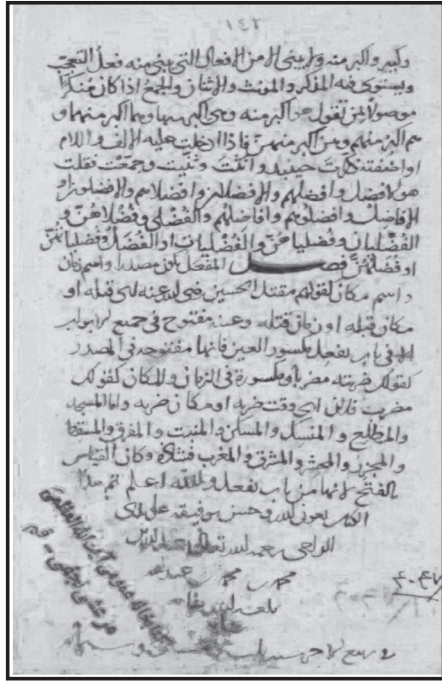 ١٤٢
وكبير وأكبر منه ولا يبنى الا من الافعال التي يبنى منه فعل التعجب
ويستوى فيه المذكر والمونث والاثنان والجمع اذا كان منكرا
موصولا بمن تقول هو أكبر منه وهي اكبر منها وهما اكبر منهما و
هم اكبر منهم وهن اكبر منهن فاذا ادخلت عليه الالف واللام
او اضفته ذكرت حينئذ وانثت وثنيت وجمعت فقلت
هو الافضل وافضلهم والافضلان وافضلاهم والافضلون و
الافاضل وافضلوهم وافاضلهم والفضلى وفضلاهن و
الفضليان وفضلياهن والفضليات او الفضل وفضلياتهن
او فضلهن فصل المفعل يكون مصدرا واسم زمان
واسم مكان كقولهم مقتل الحسين رضي الله عنه اى قتله او
مكان قتله او زمان قتله وعينه مفتوح في جميع الابواب
الا في باب يفعل مكسور العين فانها مفتوحة في المصدر
كقولك ضربته مضربا ومكسورة في الزمان والمكان كقولك
مضرب فلان اى وقت ضربه او مكان ضربه واما المسجد
والمطلع والمنسك والمسكن والمنبت والمفرق والمسقط
والمجزر والمحشر والمشرق والمغرب فشاذة وكان القياس
بالفتح لانها من باب يفعل والله اعلم تم هذا
الكتاب بعون الله وحسن توفيقه على يدى
الراجي رحمة الله تعالى
محمد بن محمد بن
كتابخانه عمومى آيت الله العظمى
مرعشى نجفى - قم
٤٠٤٧